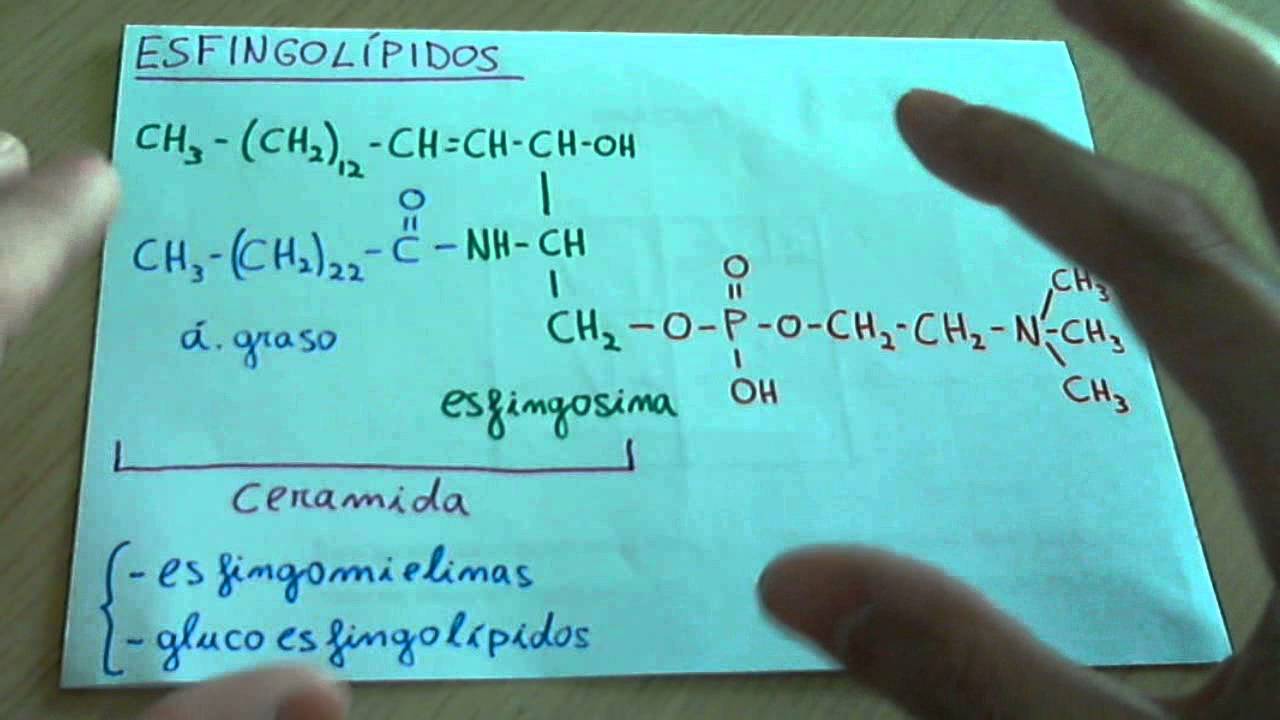 ESFINGOLÍPIDOS
CH3-(CH2)12-CH=CH-CH-OH
O
CH3-(CH2)22-C-NH-CH
O
CH3
CH2-O-P-O-CH2-CH2-N-CH3
á. graso
OH
CH3
esfingosina
Ceramida
- esfingomielinas
- glucoesfingolípidos